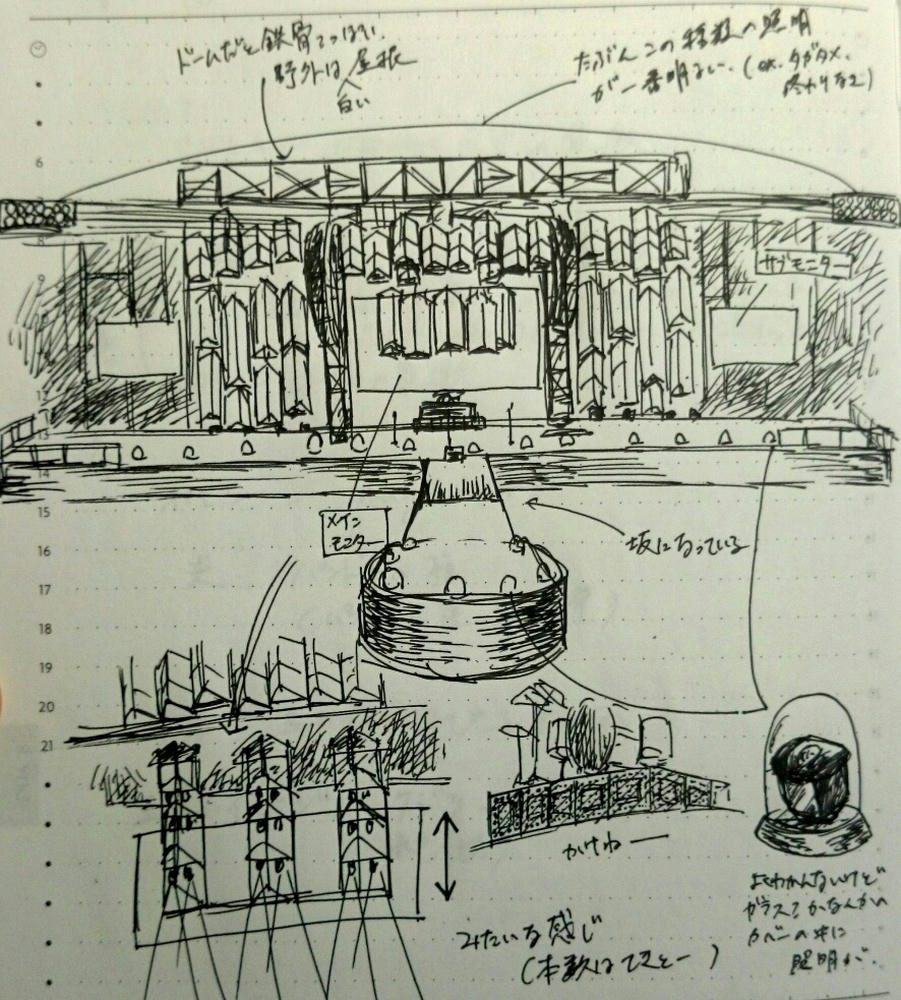 ドームだと鉄骨てっぽい.
野外は屋根
白い
たぶんこの種類の照明
が一番明るい. (ex. タガタメ,
終わりなど)
6
8
9
サブモニター
13
14
15
メイン
モニター
16
坂になっている
17
18
19
20
21
かけね
みたいな感じ
(本数はてきとー)
よくわかんないけど
ガラス?かなんかの
カバーの中に
照明が.